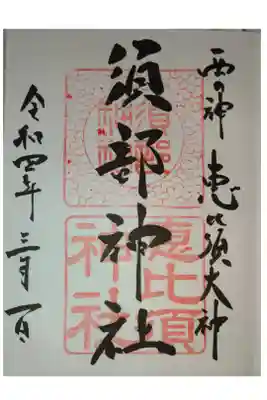 西の神 恵比須大神
須部神社
令和四年三月一日
須部神社
恵比須神社